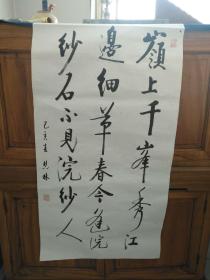 嶺上千峯秀江
邊細草春今逢浣
紗石不見浣紗人
乙亥春